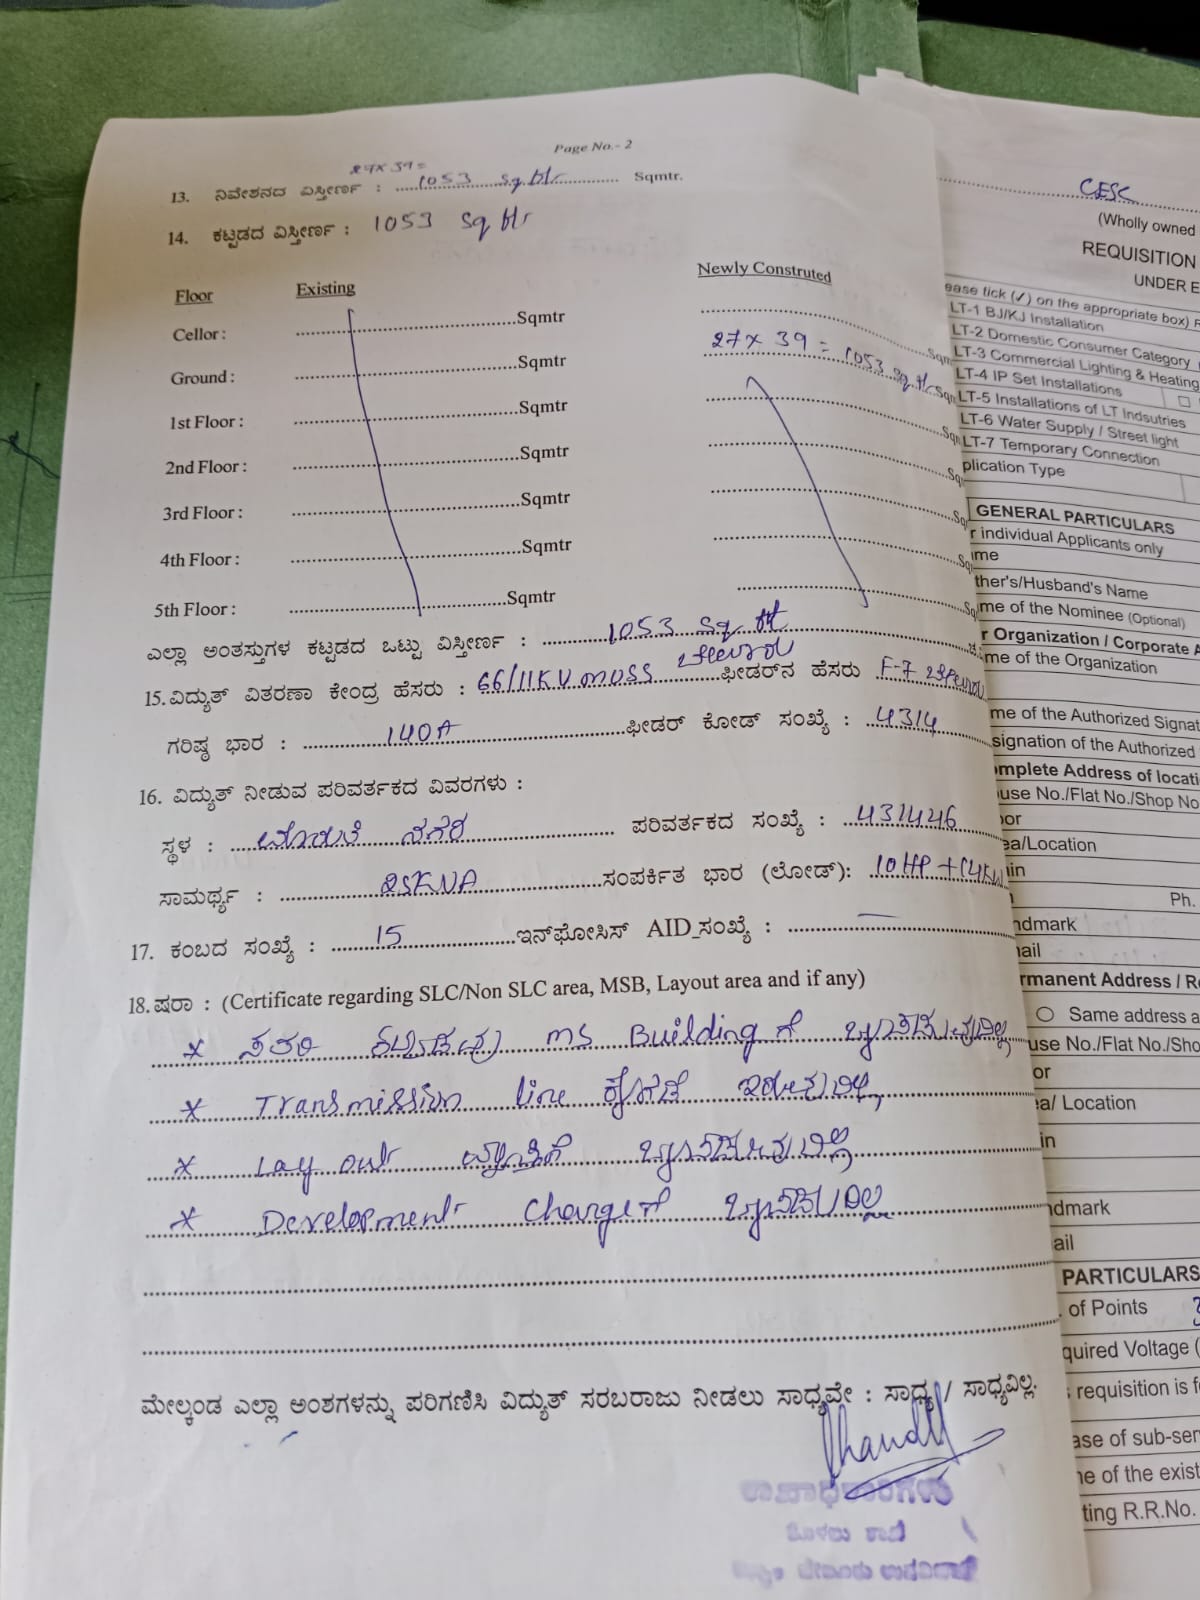 Page No.- 2
27 x 39 =
13. ನಿವೇಶನದ ವಿಸ್ತೀರ್ಣ : 1053 Sq. Sqmtr.
14. ಕಟ್ಟಡದ ವಿಸ್ತೀರ್ಣ : 1053 Sq
Floor Existing Newly Construted
Cellor : Sqmtr Sqm
Ground : Sqmtr 27 x 39 = 1053 Sq
1st Floor : Sqmtr
2nd Floor : Sqmtr
3rd Floor : Sqmtr
4th Floor : Sqmtr
5th Floor : Sqmtr
ಎಲ್ಲಾ ಅಂತಸ್ತುಗಳ ಕಟ್ಟಡದ ಒಟ್ಟು ವಿಸ್ತೀರ್ಣ : 1053 Sq
15. ವಿದ್ಯುತ್ ವಿತರಣಾ ಕೇಂದ್ರ ಹೆಸರು : 66/11KV MUSS ಫೀಡರ್‌ನ ಹೆಸರು F-7
ಗರಿಷ್ಠ ಭಾರ : 140A ಫೀಡರ್ ಕೋಡ್ ಸಂಖ್ಯೆ : 4314
16. ವಿದ್ಯುತ್ ನೀಡುವ ಪರಿವರ್ತಕದ ವಿವರಗಳು :
ಸ್ಥಳ : ನಗರ ಪರಿವರ್ತಕದ ಸಂಖ್ಯೆ : 431446
ಸಾಮರ್ಥ್ಯ : 25KVA ಸಂಪರ್ಕಿತ ಭಾರ (ಲೋಡ್): 10HP +
17. ಕಂಬದ ಸಂಖ್ಯೆ : 15 ಇನ್‌ಫೋಸಿಸ್ AID ಸಂಖ್ಯೆ : —
18. ಷರಾ : (Certificate regarding SLC/Non SLC area, MSB, Layout area and if any)
* ಸದರಿ ಕಟ್ಟಡವು MS Building ಗೆ
* Transmission line ಕೆಳಗಡೆ ಇರುವುದಿಲ್ಲ,
* Lay out ವ್ಯಾಪ್ತಿಗೆ
* Development Charge ಗೆ
ಮೇಲ್ಕಂಡ ಎಲ್ಲಾ ಅಂಶಗಳನ್ನು ಪರಿಗಣಿಸಿ ವಿದ್ಯುತ್ ಸರಬರಾಜು ನೀಡಲು ಸಾಧ್ಯವೇ : ಸಾಧ್ಯ / ಸಾಧ್ಯವಿಲ್ಲ.
CESC
(Wholly owned
REQUISITION
UNDER E
ease tick (✓) on the appropriate box)
LT-1 BJ/KJ Installation
LT-2 Domestic Consumer Category
LT-3 Commercial Lighting & Heating
LT-4 IP Set Installations
LT-5 Installations of LT Indsutries
LT-6 Water Supply / Street light
LT-7 Temporary Connection
plication Type
GENERAL PARTICULARS
r individual Applicants only
me
ther's/Husband's Name
me of the Nominee (Optional)
r Organization / Corporate A
me of the Organization
me of the Authorized Signat
signation of the Authorized
omplete Address of locati
use No./Flat No./Shop No
oor
ea/Location
in
Ph.
ndmark
ail
rmanent Address / R
Same address a
use No./Flat No./Sho
or
ea/ Location
in
dmark
ail
PARTICULARS
of Points
quired Voltage (
requisition is f
ase of sub-ser
e of the exist
ting R.R.No.